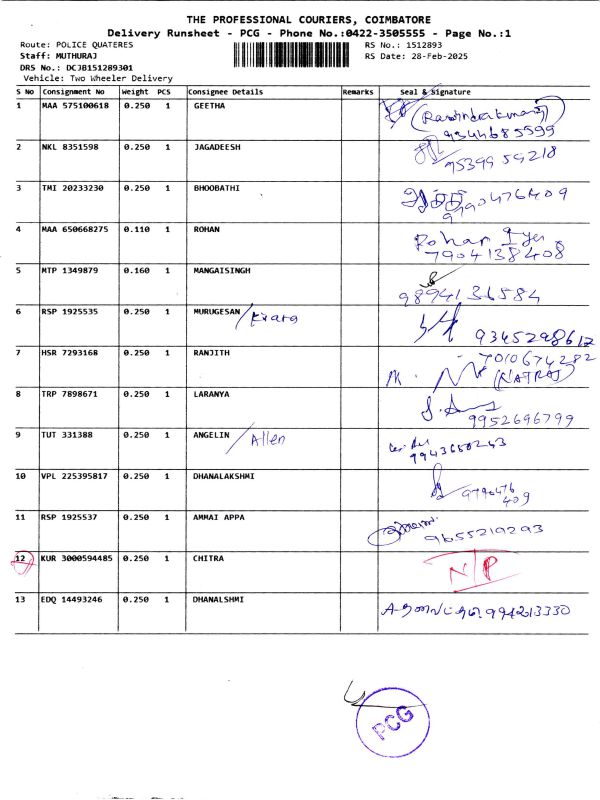 THE PROFESSIONAL COURIERS, COIMBATORE
Delivery Runsheet - PCG - Phone No.:0422-3505555 - Page No.:1
Route: POLICE QUATERES RS No.: 1512893
Staff: MUTHURAJ RS Date: 28-Feb-2025
DRS No.: DCJB151289301
Vehicle: Two Wheeler Delivery
S No Consignment No Weight PCS Consignee Details Remarks Seal & Signature
1 MAA 575100618 0.250 1 GEETHA
9344685599
2 NKL 8351598 0.250 1 JAGADEESH
9539959218
3 TMI 20233230 0.250 1 BHOOBATHI
9790476409
4 MAA 650668275 0.110 1 ROHAN Rohan Iyer
7904138408
5 MTP 1349879 0.160 1 MANGAISINGH
9894136584
6 RSP 1925535 0.250 1 MURUGESAN
9345298612
7 HSR 7293168 0.250 1 RANJITH 7010674282
(NATRAJ)
8 TRP 7898671 0.250 1 LARANYA
9952696799
9 TUT 331388 0.250 1 ANGELIN / Allen
7943650243
10 VPL 225395817 0.250 1 DHANALAKSHMI
9790476
409
11 RSP 1925537 0.250 1 AMMAI APPA
9655219293
12 KUR 3000594485 0.250 1 CHITRA N/P
13 EDQ 14493246 0.250 1 DHANALSHMI 994213330
PCG